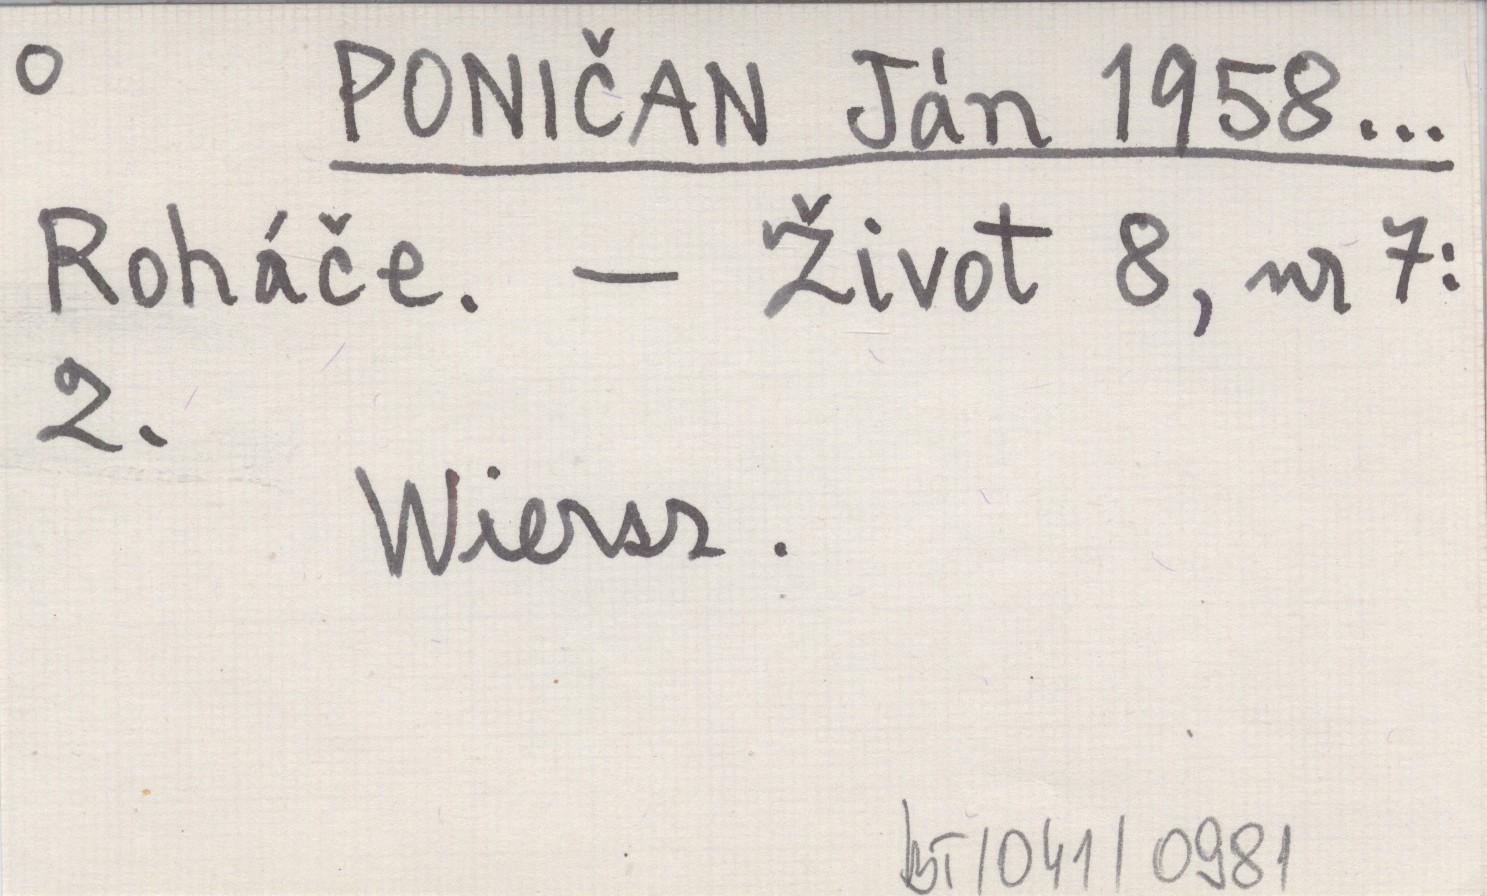 o PONIČAN Ján 1958...
Roháče. — Život 8, nr 7:
2.
Wiersz.
/041/0981